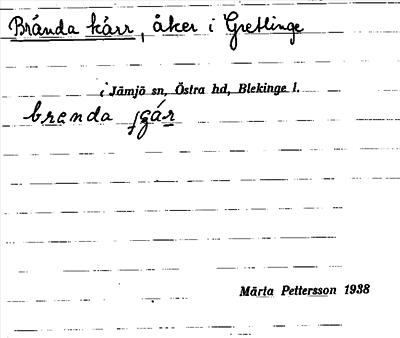 Brända kärr, åker i Gretlinge
i Jämjö sn, Östra hd, Blekinge l.
brenda
Märta Pettersson 1938